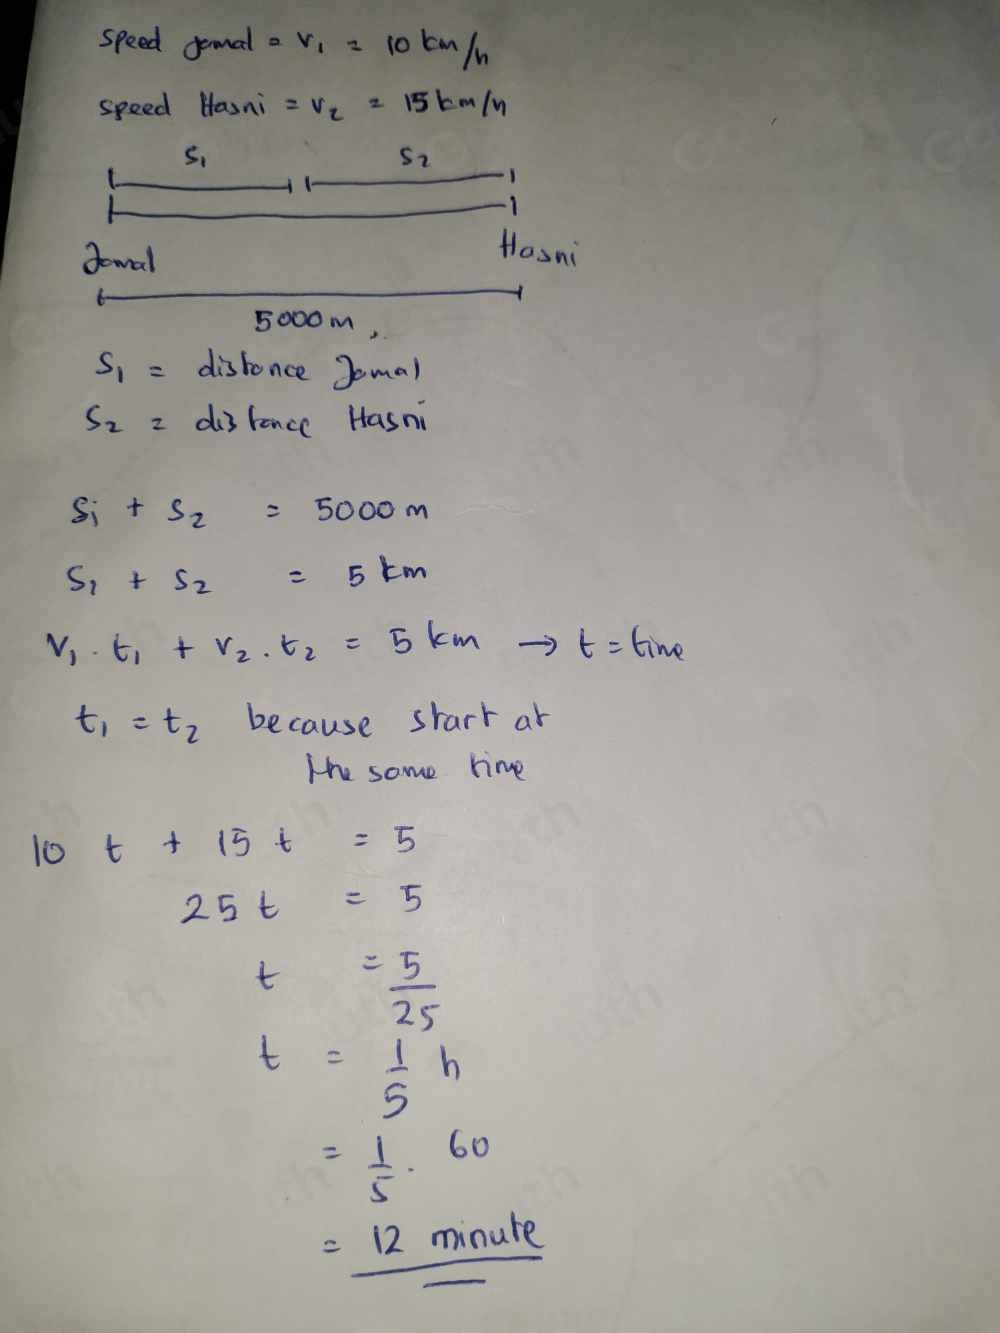 speed Jamal = v₁ = 10 km/h
speed Hasni = v₂ = 15 km/h
S₁ S₂
Jamal Hasni
5000 m
S₁ = distance Jamal
S₂ = distance Hasni
S₁ + S₂ = 5000 m
S₁ + S₂ = 5 km
V₁ . t₁ + v₂ . t₂ = 5 km → t = time
t₁ = t₂ because start at
the same time
10 t + 15 t = 5
25 t = 5
t = 5/25
t = 1/5 h
= 1/5 . 60
= 12 minute